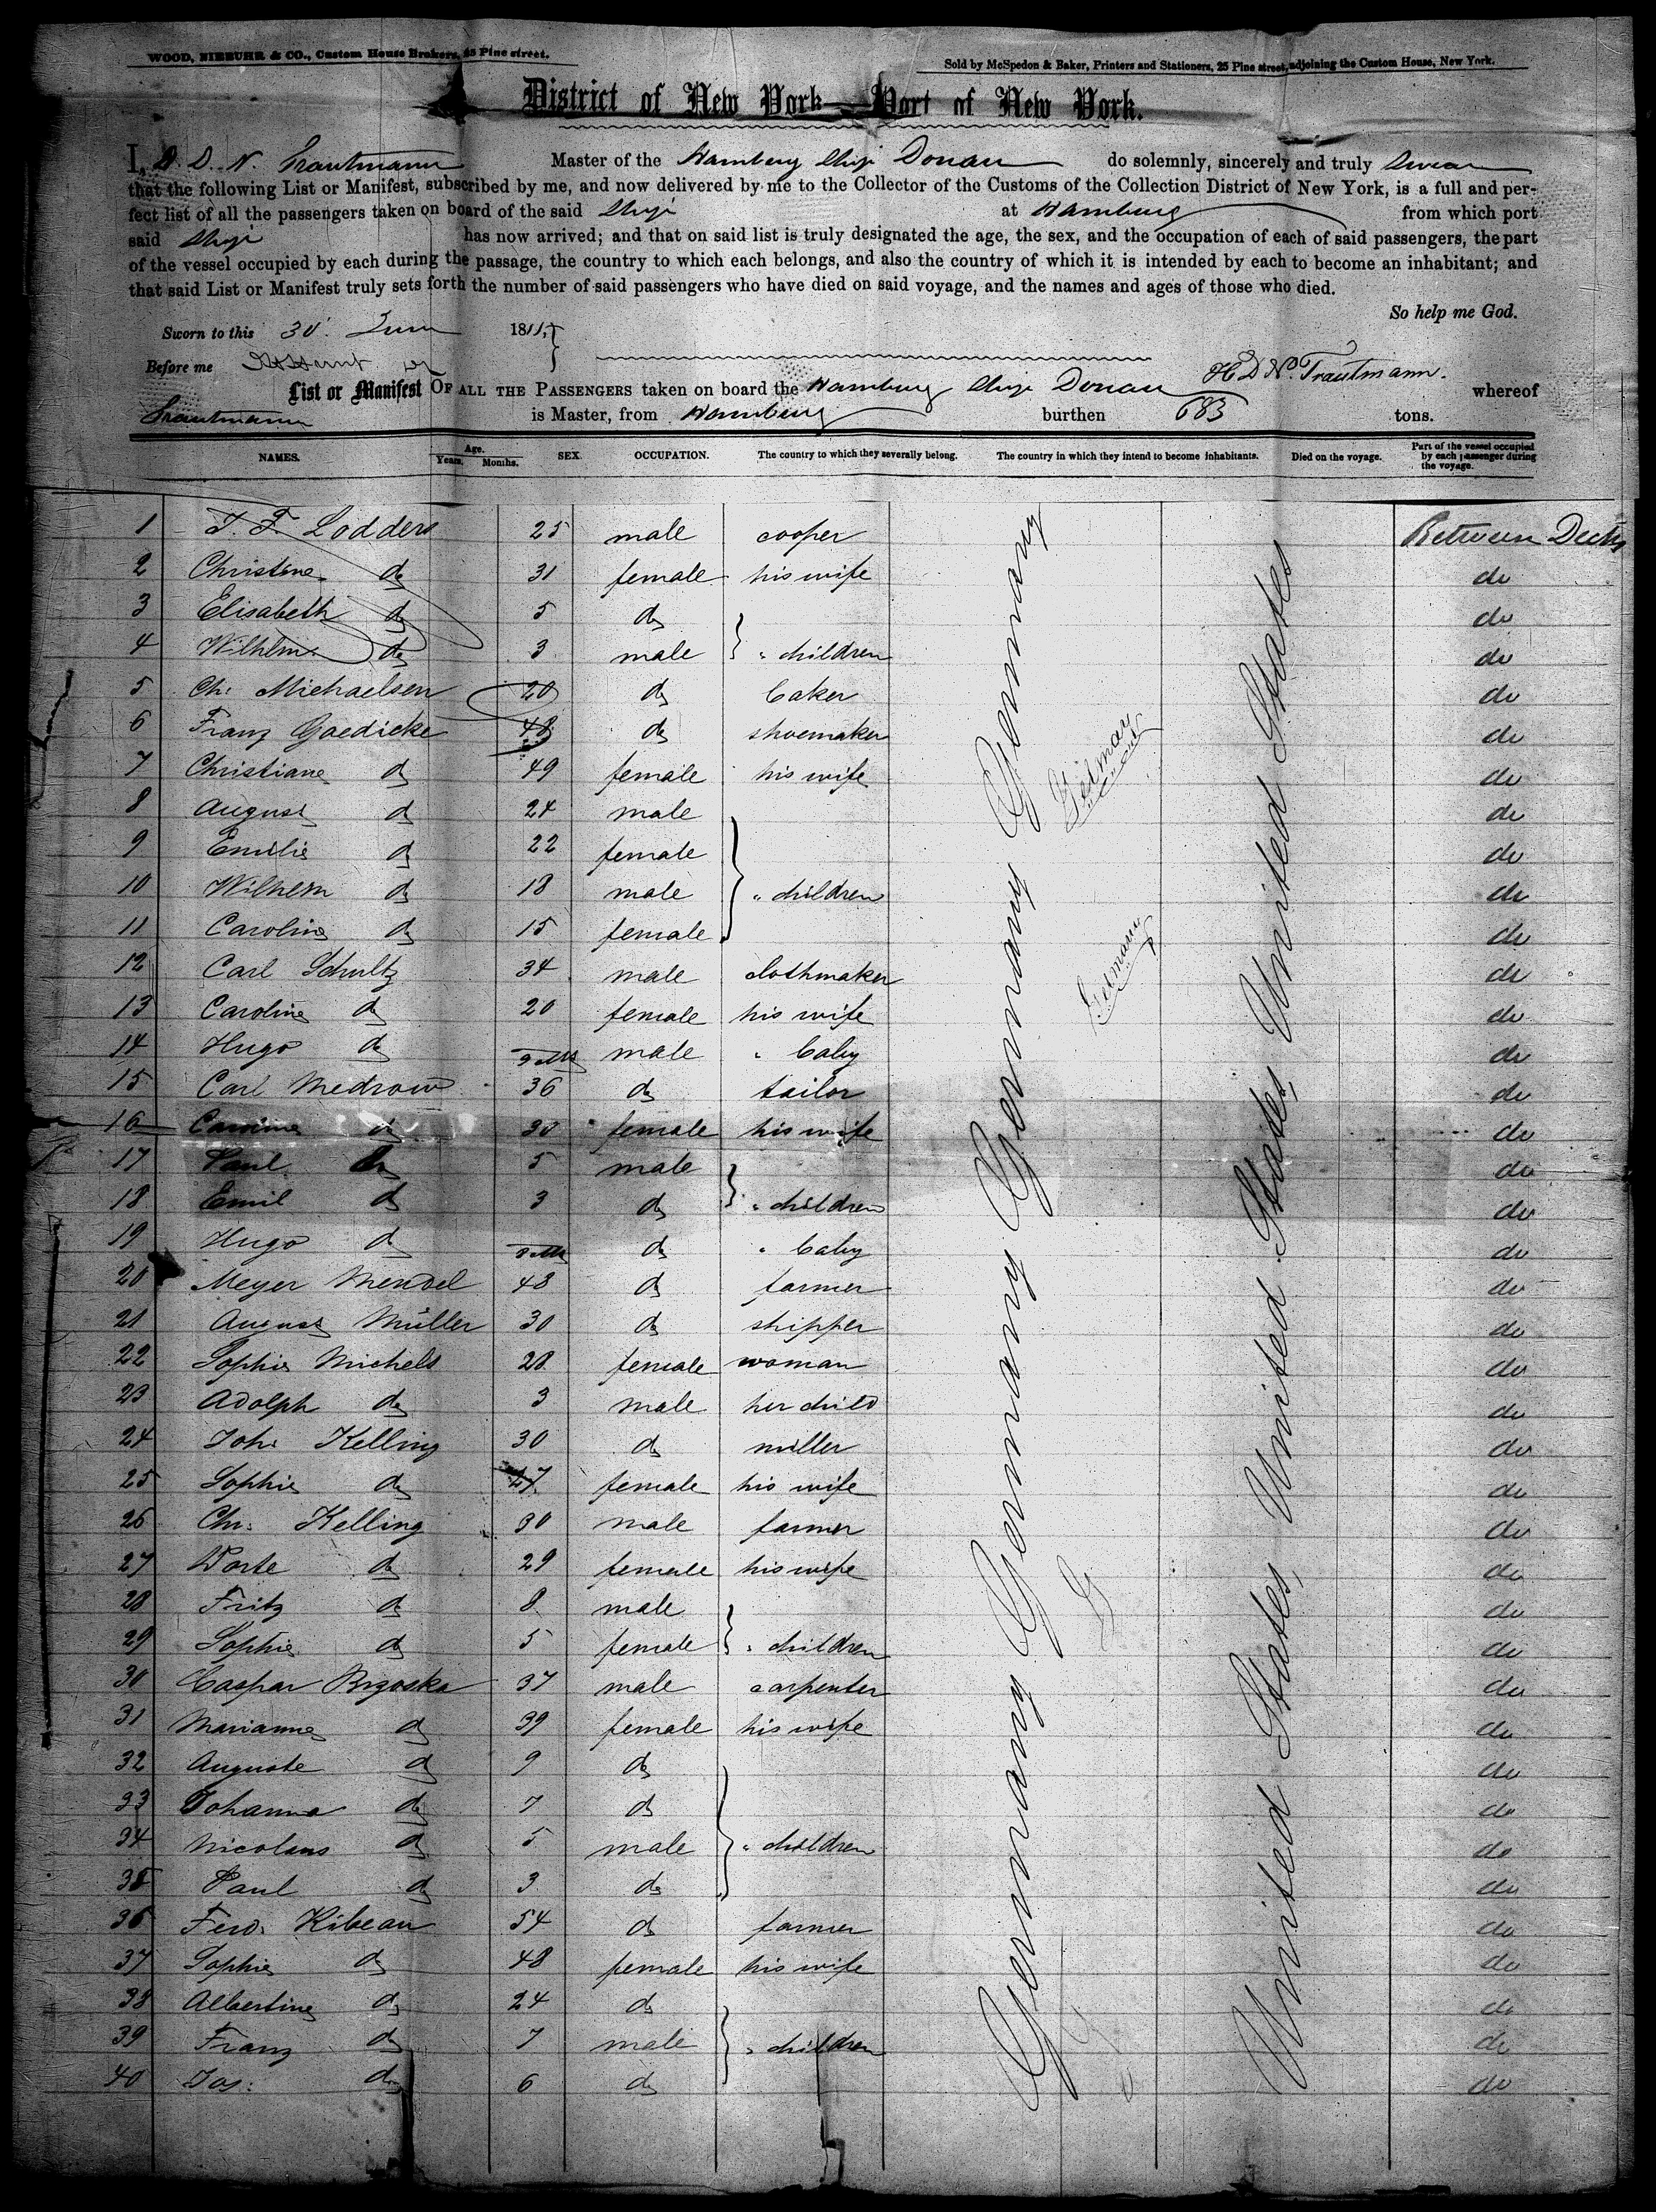 WOOD, NIEBUHR & CO., Custom House Brokers, 25 Pine street.
Sold by McSpedon & Baker, Printers and Stationers, 25 Pine street, adjoining the Custom House, New York.
District of New York—Port of New York.
I, D. N. Trautmann Master of the Hamburg Ship Donau do solemnly, sincerely and truly Swear
that the following List or Manifest, subscribed by me, and now delivered by me to the Collector of the Customs of the Collection District of New York, is a full and per-
fect list of all the passengers taken on board of the said Ship at Hamburg from which port
said Ship has now arrived; and that on said list is truly designated the age, the sex, and the occupation of each of said passengers, the part
of the vessel occupied by each during the passage, the country to which each belongs, and also the country of which it is intended by each to become an inhabitant; and
that said List or Manifest truly sets forth the number of said passengers who have died on said voyage, and the names and ages of those who died.
So help me God.
Sworn to this 30 June 18
Before me
H D N. Trautmann.
List or Manifest OF ALL THE PASSENGERS taken on board the Hamburg Ship Donau whereof
Trautmann is Master, from Hamburg burthen 683 tons.
NAMES. Age. Years. Months. SEX. OCCUPATION. The country to which they severally belong. The country in which they intend to become inhabitants. Died on the voyage. Part of the vessel occupied by each passenger during the voyage.
1 J. F. Lodders 25 male cooper Between Decks
2 Christine do 31 female his wife do
3 Elisabeth do 5 do do
4 Wilhelm do 3 male " children do
5 Ch: Michaelsen 20 do baker do
6 Franz Goedicke 48 do shoemaker do
7 Christiane do 49 female his wife do
8 August do 24 male do
9 Emilie do 22 female do
10 Wilhelm do 18 male " children do
11 Caroline do 15 female do
12 Carl Schultz 34 male clothmaker do
13 Caroline do 20 female his wife do
14 Hugo do 9 Mts male " baby do
15 Carl Medrow 36 do tailor do
16 do 30 female his wife do
17 Paul do 5 male do
18 Emil do 3 do " children do
19 Hugo do Mts do " baby do
20 Meyer Mendel 48 do farmer do
21 August Müller 30 do shipper do
22 Sophie Michels 28 female woman do
23 Adolph do 3 male her child do
24 Joh: Kelling 30 do miller do
25 Sophie do 27 female his wife do
26 Chr: Kelling 30 male farmer do
27 Dorte do 29 female his wife do
28 Fritz do 8 male do
29 Sophie do 5 female " children do
30 Caspar Brzoska 37 male carpenter do
31 Marianne do 39 female his wife do
32 Auguste do 9 do do
33 Johanna do 7 do do
34 Nicolaus do 5 male " children do
35 Paul do 3 do do
36 Ferd: Kibeau 54 do farmer do
37 Sophie do 48 female his wife do
38 Albertine do 24 do do
39 Franz do 7 male " children do
40 Jos: do 6 do do
Germany Germany Germany Germany
Germany
Germany
United States, United States, United States